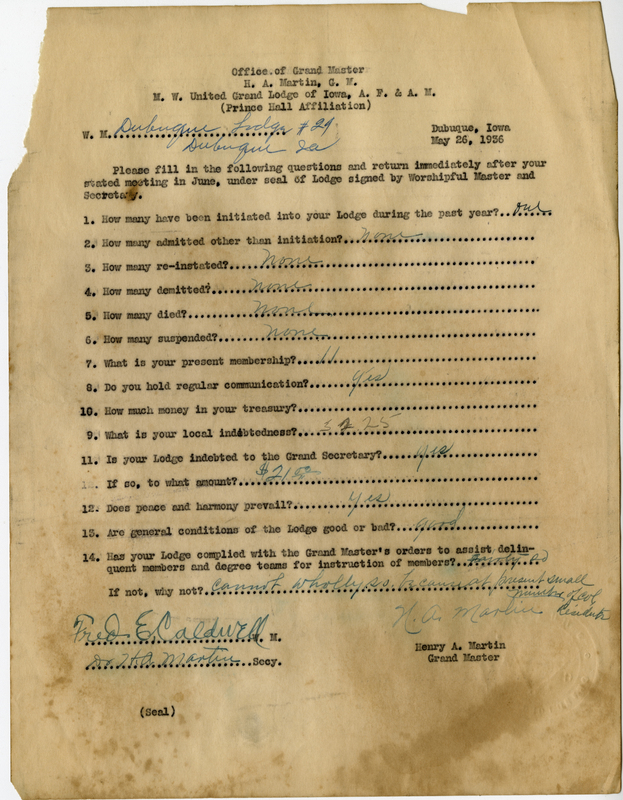 Office of Grand Master
H. A. Martin, G. M.
M. W. United Grand Lodge of Iowa, A. F. & A. M.
(Prince Hall Affiliation)
W. M. Dubuque Lodge #29
Dubuque Ia
Dubuque, Iowa
May 26, 1936
Please fill in the following questions and return immediately after your
stated meeting in June, under seal of Lodge signed by Worshipful Master and
Secretary.
1. How many have been initiated into your Lodge during the past year?.. one
2. How many admitted other than initiation?.. none
3. How many re-instated?.... none
4. How many demitted?... none
5. How many died?... none
6. How many suspended?... none
7. What is your present membership?... 11
8. Do you hold regular communication?... yes
10. How much money in your treasury?
9. What is your local indebtedness?... 25
11. Is your Lodge indebted to the Grand Secretary?... yes
If so, to what amount? $21
12. Does peace and harmony prevail?... yes
13. Are general conditions of the Lodge good or bad?.. good
14. Has your Lodge complied with the Grand Master's orders to assist delin-
quent members and degree teams for instruction of members?
If not, why not?. cannot wholly so, at present small
number of col
residents
H. A. Martin
Fred E. Caldwell M.
Dr. H A Martin Secy.
Henry A. Martin
Grand Master
(Seal)